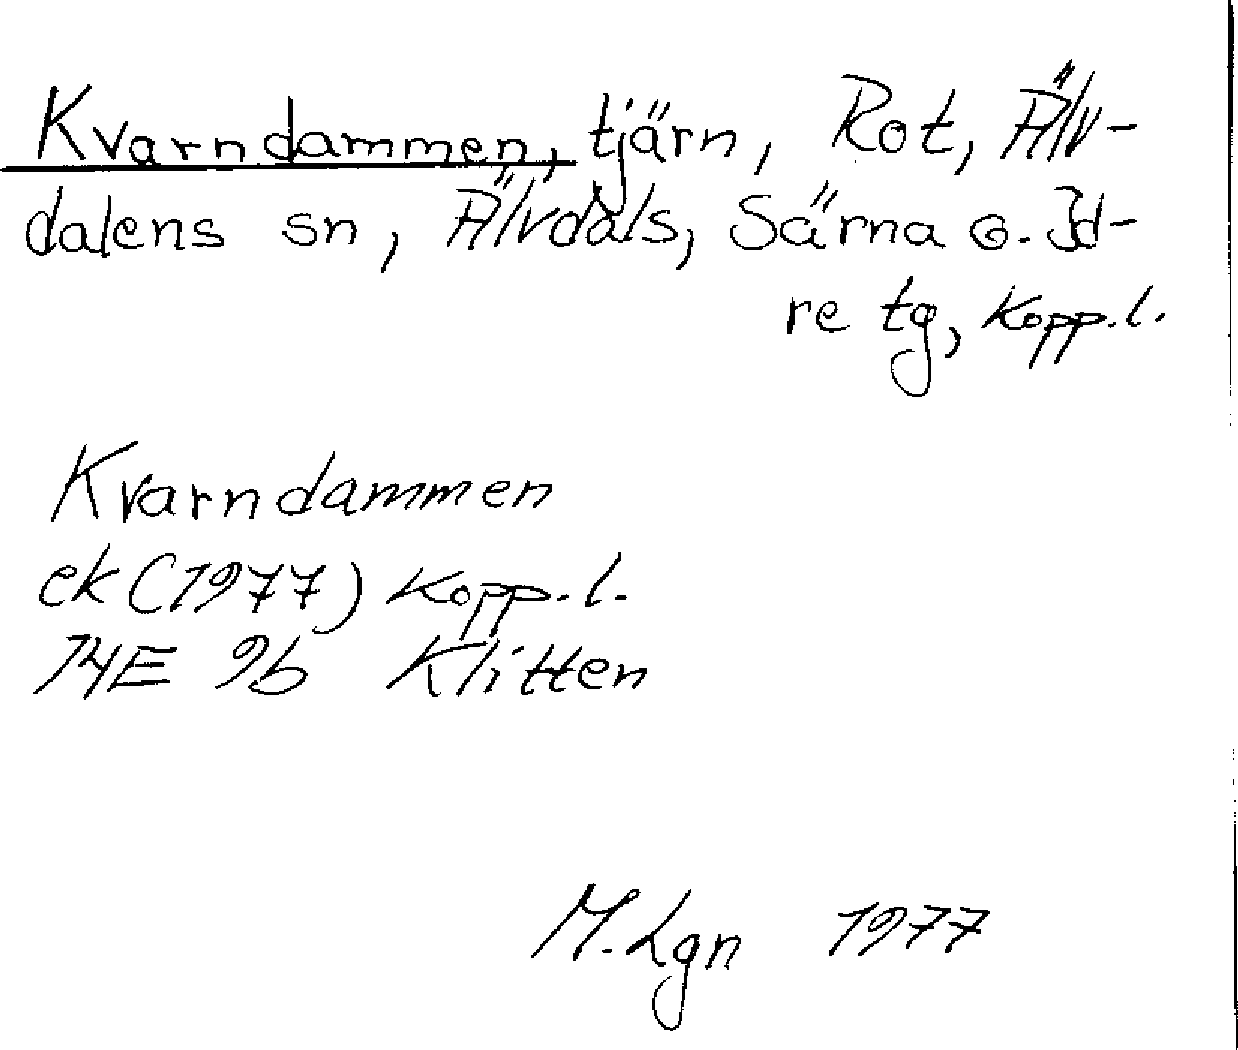 Kvarndammen, tjärn, Rot, Älv-
dalens sn, Älvdals, Särna o. Id-
re tg, Kopp.l.
Kvarndammen
ek (1977) Kopp.l.
14E 9b Klitten
M. Lgn 1977